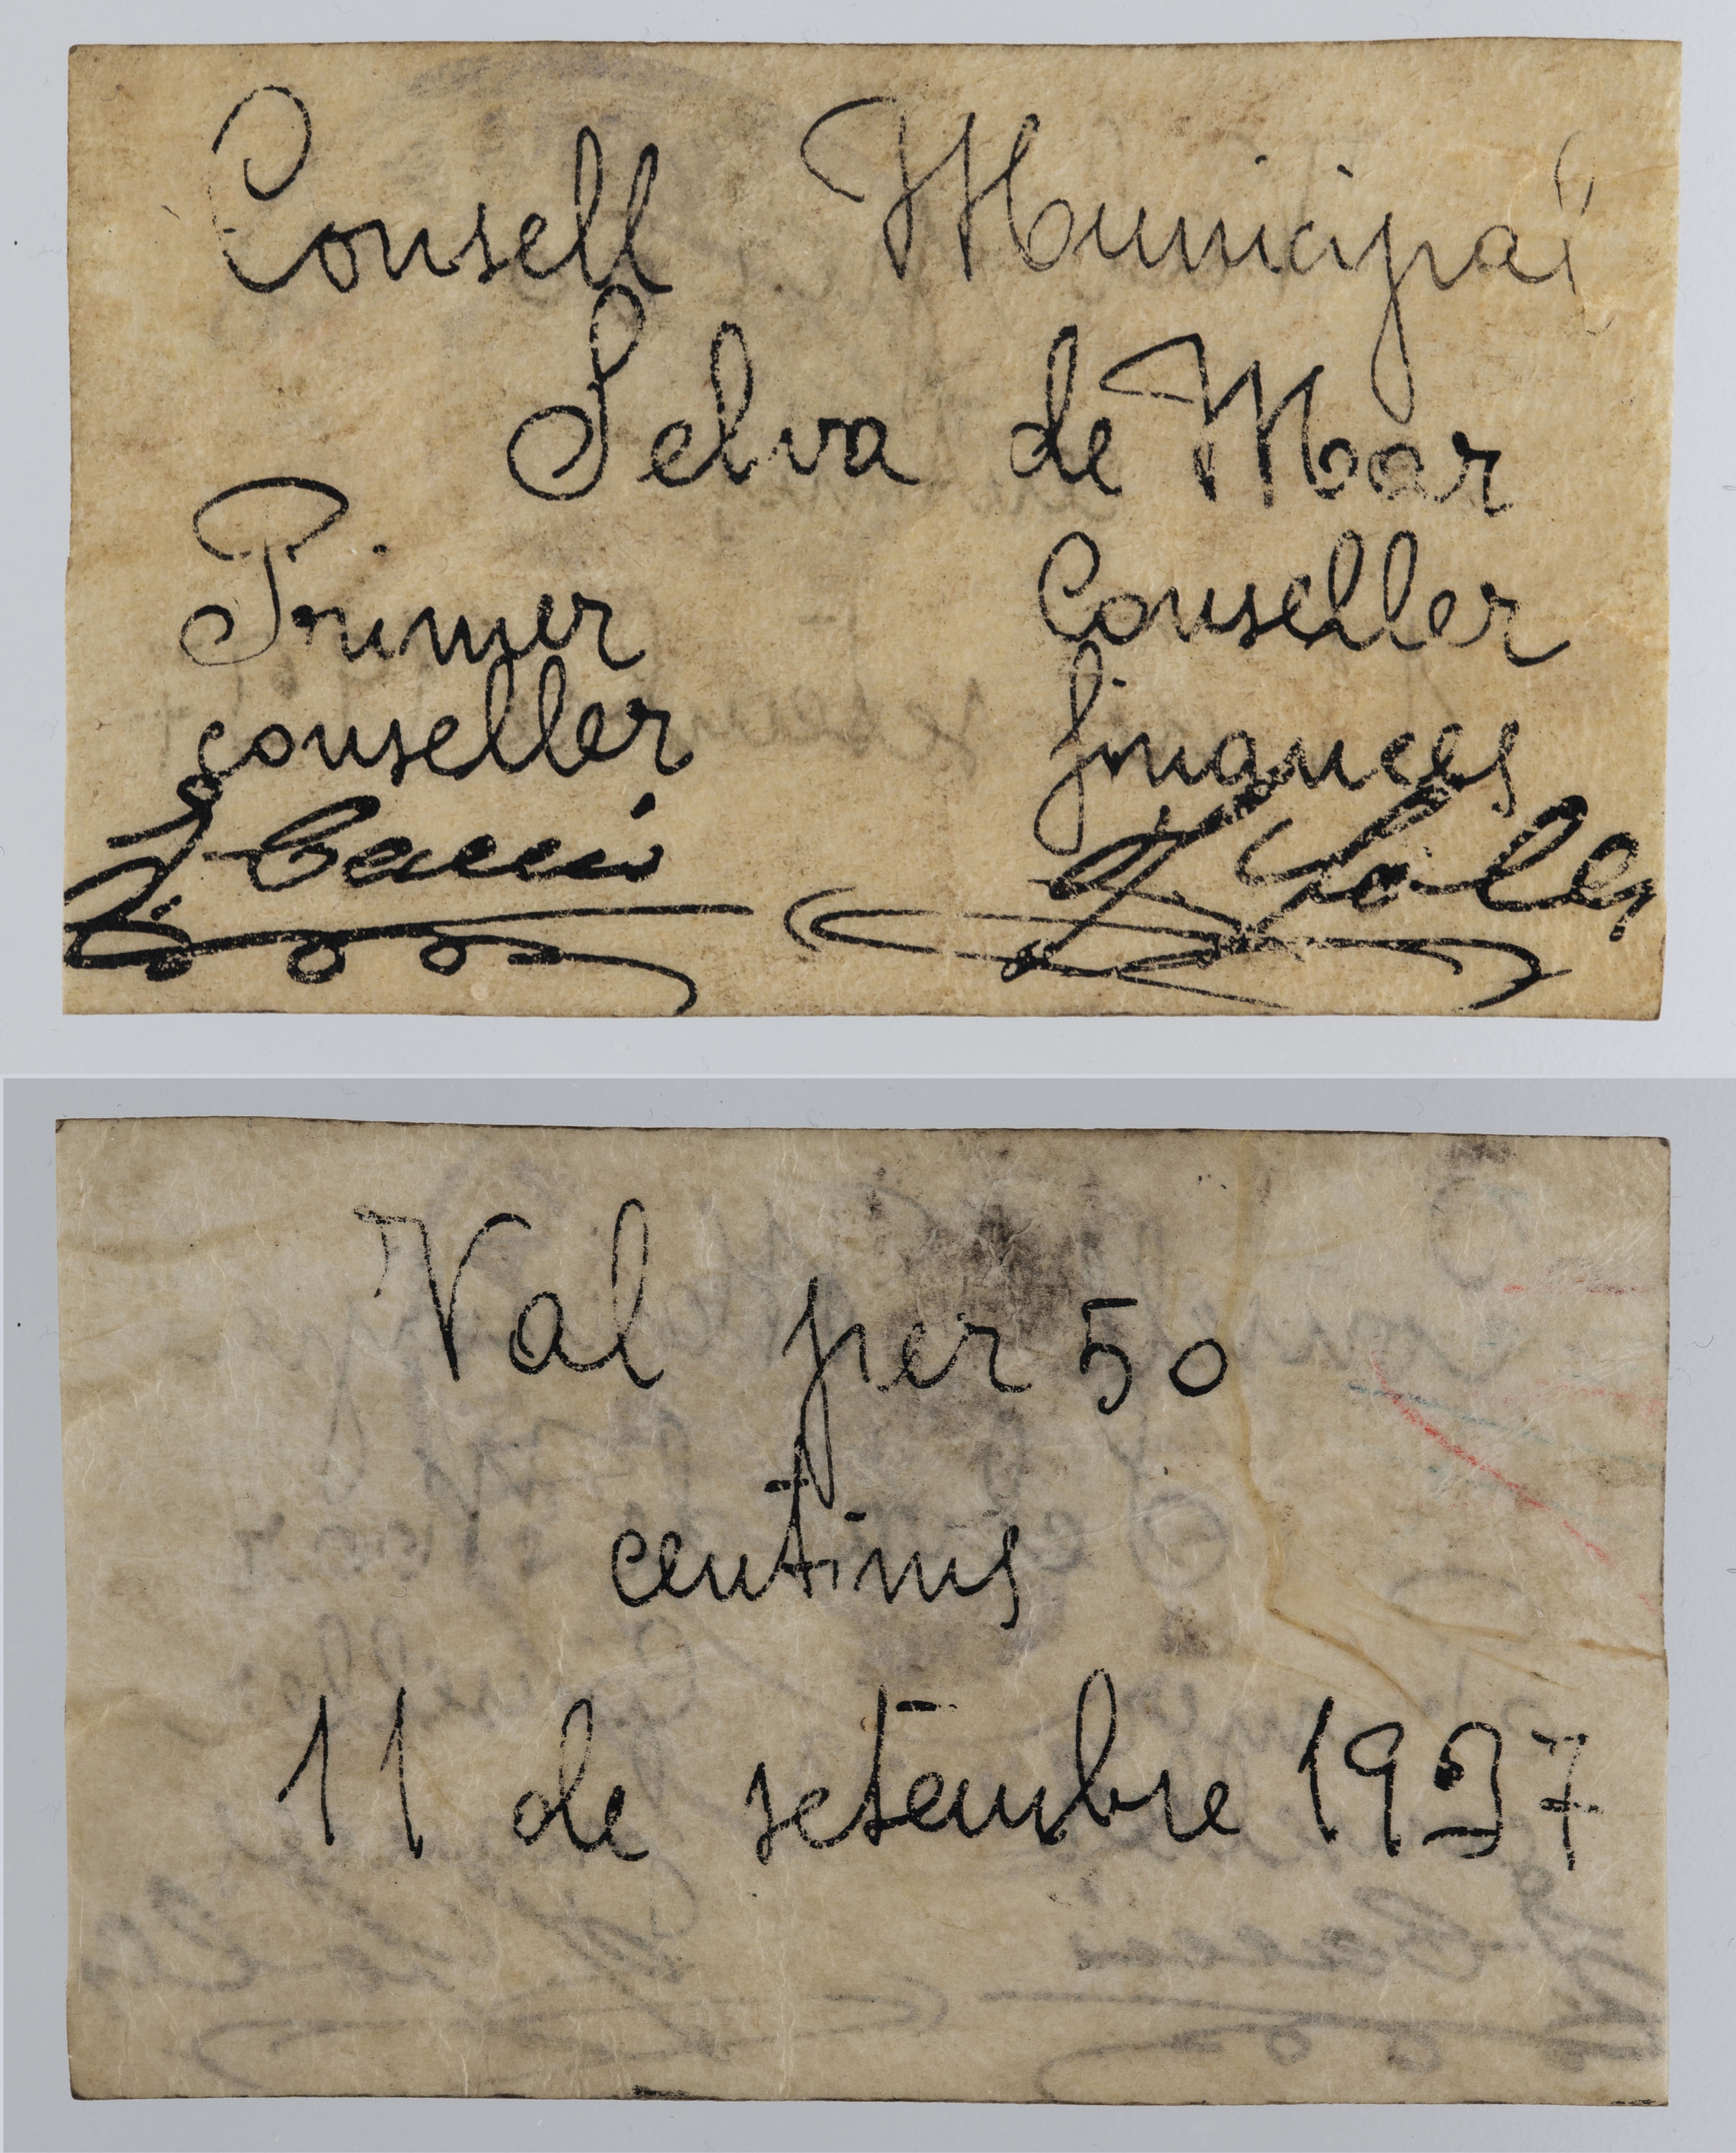 Consell Municipal
Selva de Mar
Primer Conseller
conseller finances
Val per 50
centims
11 de setembre 1937